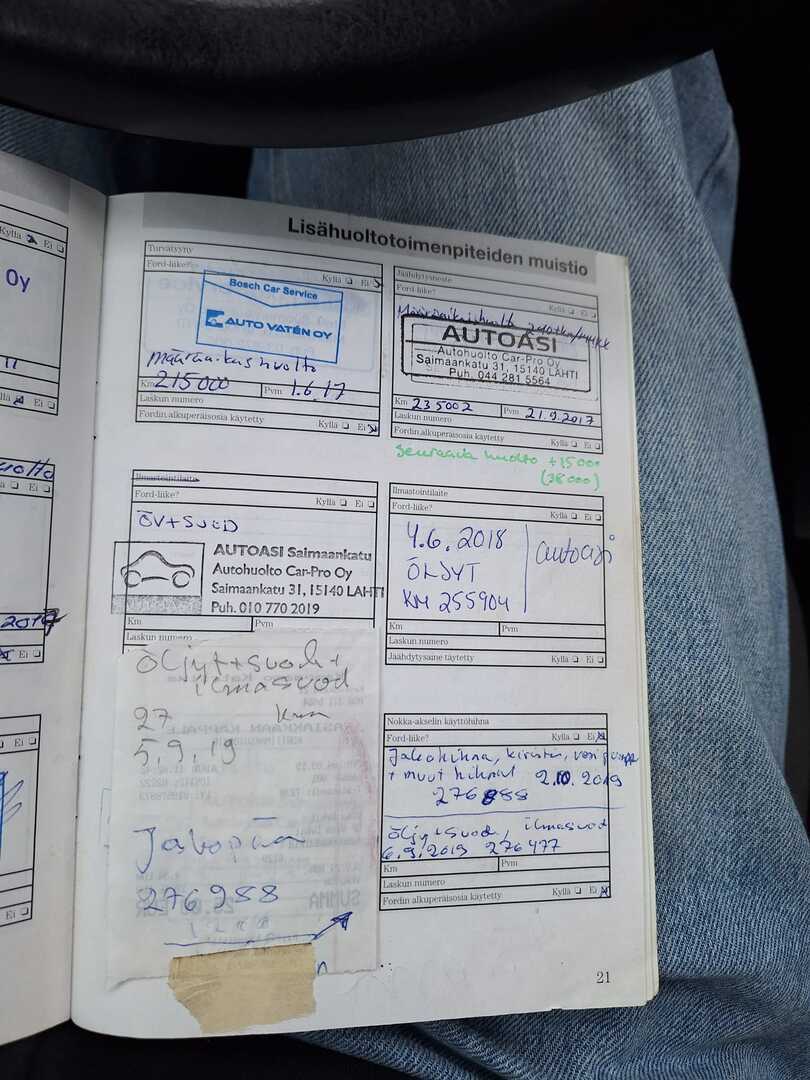 Kylla Ei
Oy
11
Ei
uolto
Ei
2017
Ei
Ei
Ei
Lisähuoltotoimenpiteiden muistio
Turvatyyny
Ford-liike?
Kyllä Ei
Bosch Car Service
AUTO VATÉN OY
määräaikashuolto
Km 215000 Pvm 1.6.17
Laskun numero
Fordin alkuperäisosia käytetty Kyllä Ei
Jäähdytysneste
Ford-liike?
Kyllä Ei
Määräaikaishuolto
AUTOASI
Autohuolto Car-Pro Oy
Saimaankatu 31, 15140 LAHTI
Puh. 044 281 5564
Km 235002 Pvm 21.9.2017
Laskun numero
Fordin alkuperäisosia käytetty Kyllä Ei
Seuraava huolto +15000
(38000)
Ilmastointilaite
Ford-liike? Kyllä Ei
ÖV+SUOD
AUTOASI Saimaankatu
Autohuolto Car-Pro Oy
Saimaankatu 31, 15140 LAHTI
Puh. 010 770 2019
Km Pvm
Laskun numero
Ilmastointilaite
Ford-liike?
Kyllä Ei
4.6.2018 autoasi
ÖLJYT
KM 255904
Km Pvm
Laskun numero
Jäähdytysaine täytetty Kyllä Ei
Öljyt+suod+
ilmasvod
27 km
5.9.19
Jakopää
276988
SUMMA
Nokka-akselin käyttöhihna
Ford-liike? Kyllä Ei
Jakohihna, kiristin, vesipumppu
+ muut hihnat 2.10.2019
276988
Öljy+suod, ilmasvod
6.9.2019 276477
Km Pvm
Laskun numero
Fordin alkuperäisosia käytetty Kyllä Ei
21